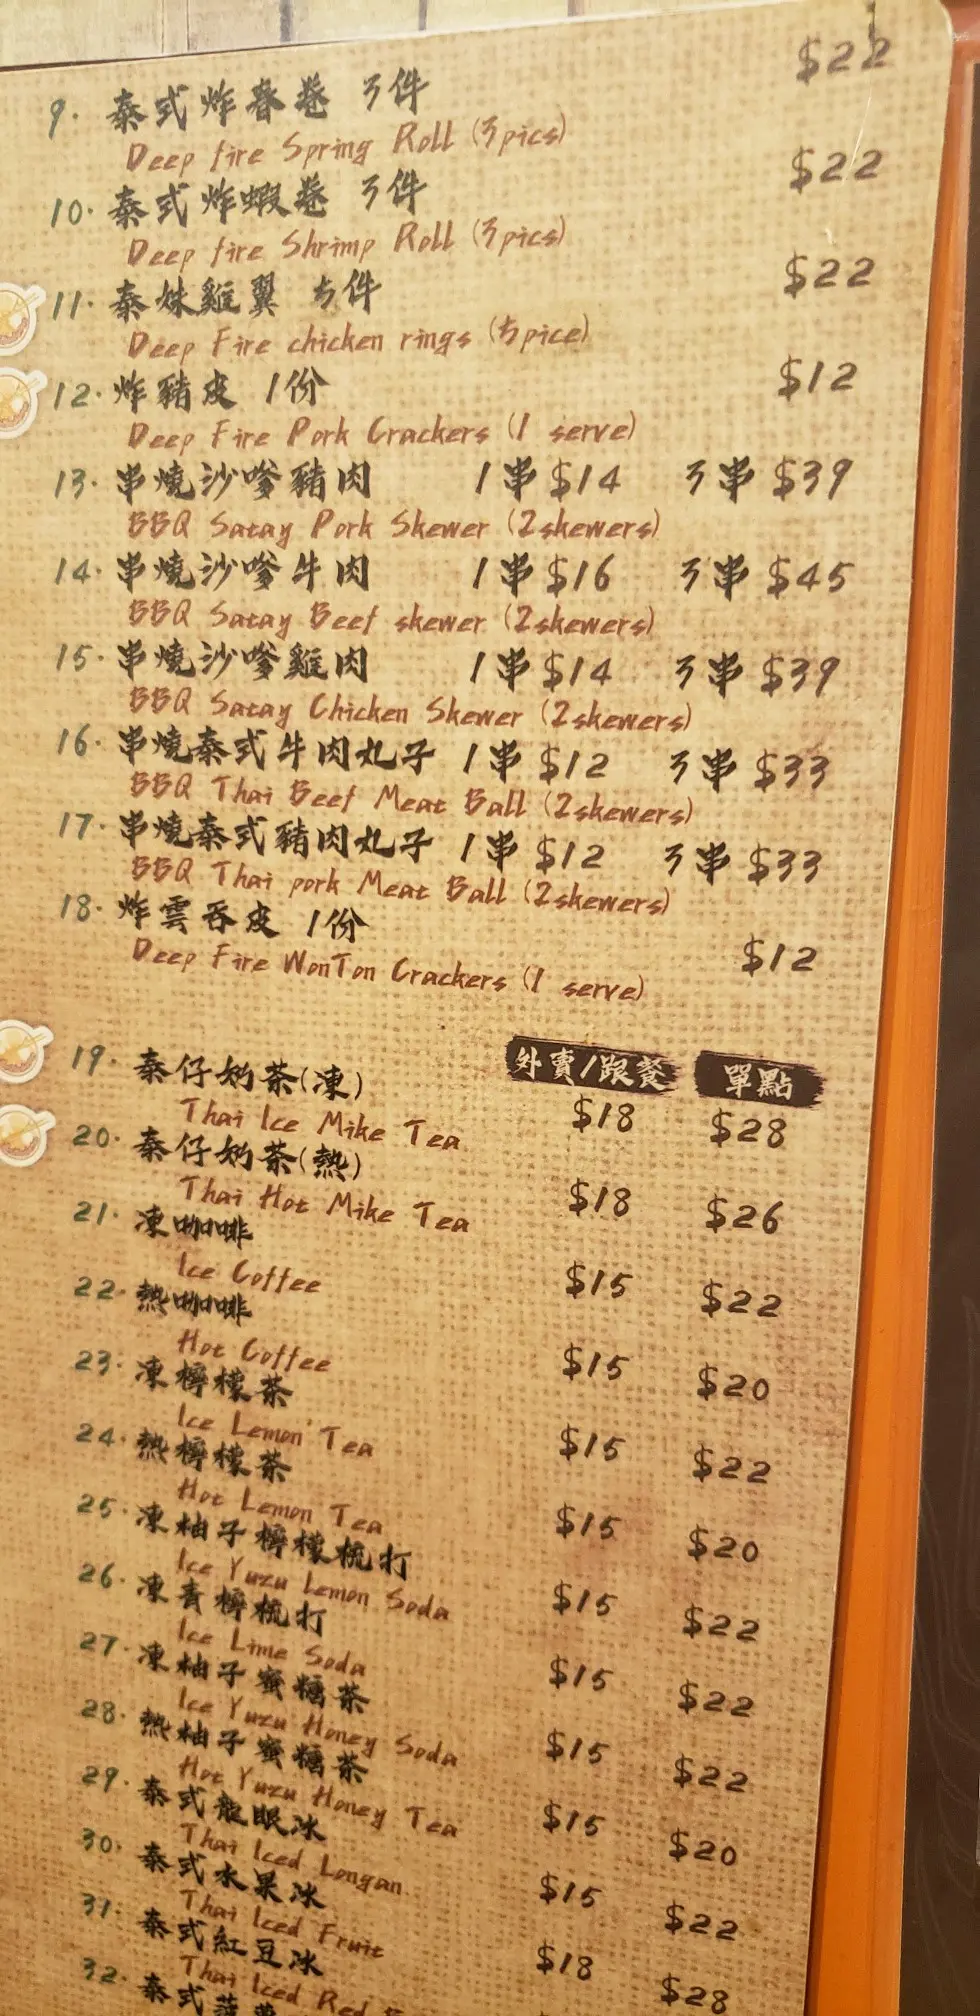 9. 泰式炸春卷 3件 $22
Deep fire Spring Roll (3pics)
10. 泰式炸蝦卷 3件 $22
Deep fire Shrimp Roll (3pics)
11. 泰妹雞翼 5件 $22
Deep Fire chicken rings (5pice)
12. 炸豬皮 1份 $12
Deep Fire Pork Crackers (1 serve)
13. 串燒沙嗲豬肉 1串 $14 3串 $39
BBQ Satay Pork Skewer (2skewers)
14. 串燒沙嗲牛肉 1串 $16 3串 $45
BBQ Satay Beef skewer (2skewers)
15. 串燒沙嗲雞肉 1串 $14 3串 $39
BBQ Satay Chicken Skewer (2skewers)
16. 串燒泰式牛肉丸子 1串 $12 3串 $33
BBQ Thai Beef Meat Ball (2skewers)
17. 串燒泰式豬肉丸子 1串 $12 3串 $33
BBQ Thai pork Meat Ball (2skewers)
18. 炸雲吞皮 1份 $12
Deep Fire WonTon Crackers (1 serve)
外賣/跟餐 單點
19. 泰仔奶茶(凍) $18 $28
Thai Ice Mike Tea
20. 泰仔奶茶(熱) $18 $26
Thai Hot Mike Tea
21. 凍咖啡 $15 $22
Ice Coffee
22. 熱咖啡 $15 $20
Hot Coffee
23. 凍檸檬茶 $15 $22
Ice Lemon Tea
24. 熱檸檬茶 $15 $20
Hot Lemon Tea
25. 凍柚子檸檬梳打 $15 $22
Ice Yuzu Lemon Soda
26. 凍青檸梳打 $15 $22
Ice Lime Soda
27. 凍柚子蜜糖茶 $15 $22
Ice Yuzu Honey Soda
28. 熱柚子蜜糖茶 $15 $20
Hot Yuzu Honey Tea
29. 泰式龍眼冰 $15 $22
Thai Iced Longan
30. 泰式水果冰 $18 $28
Thai Iced Fruit
31. 泰式紅豆冰
Thai Iced Red
32. 泰式